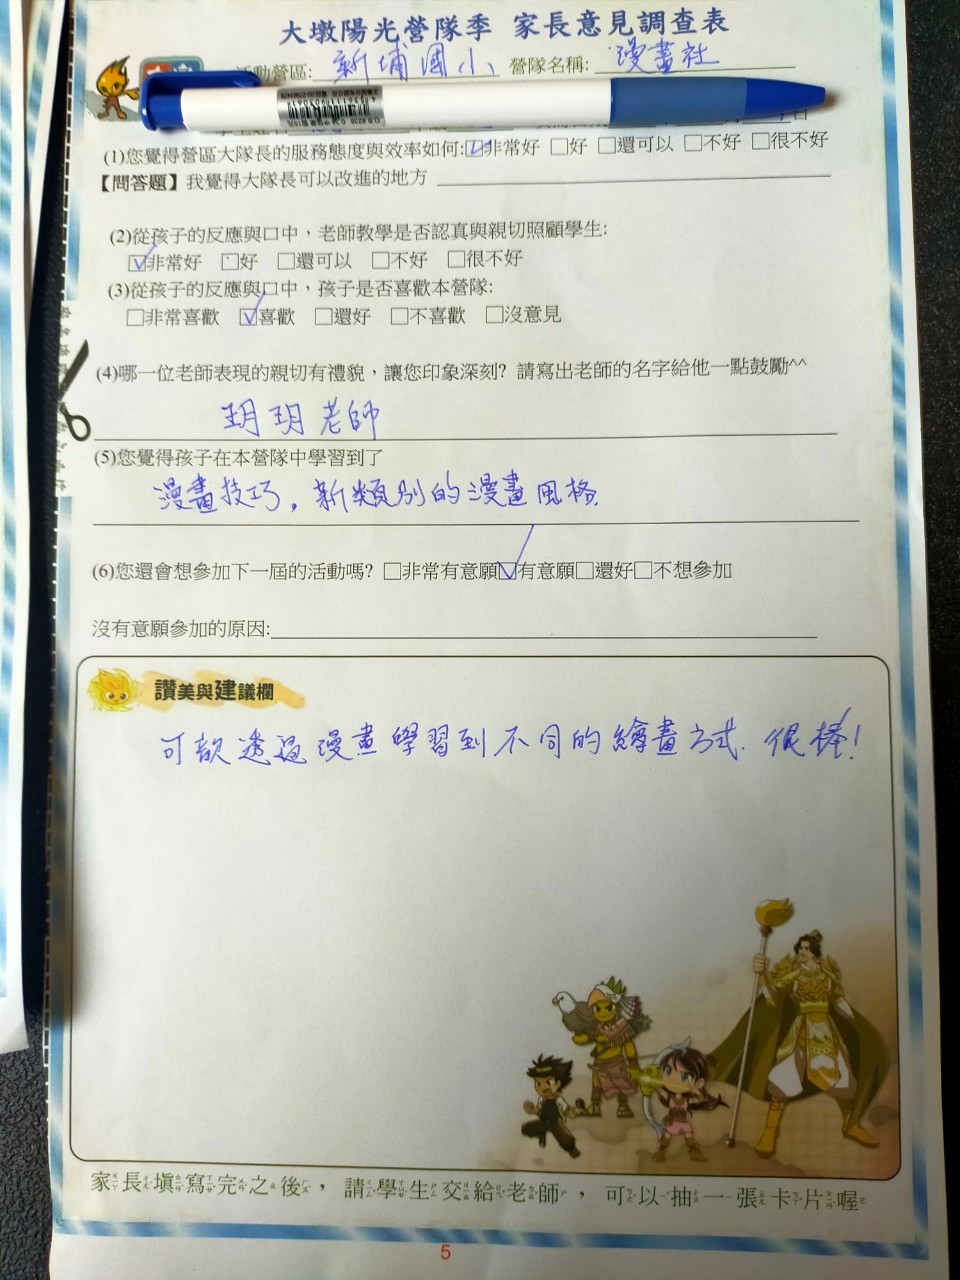 大墩陽光營隊季 家長意見調查表
活動營區: 新埔國小 營隊名稱: 漫畫社
(1)您覺得營區大隊長的服務態度與效率如何:☑非常好 □好 □還可以 □不好 □很不好
【問答題】我覺得大隊長可以改進的地方
(2)從孩子的反應與口中，老師教學是否認真與親切照顧學生:
☑非常好 □好 □還可以 □不好 □很不好
(3)從孩子的反應與口中，孩子是否喜歡本營隊:
□非常喜歡 ☑喜歡 □還好 □不喜歡 □沒意見
(4)哪一位老師表現的親切有禮貌，讓您印象深刻? 請寫出老師的名字給他一點鼓勵^^
玥玥老師
(5)您覺得孩子在本營隊中學習到了
漫畫技巧。新類別的漫畫風格.
(6)您還會想參加下一屆的活動嗎? □非常有意願☑有意願□還好□不想參加
沒有意願參加的原因:
讚美與建議欄
可透過漫畫學習到不同的繪畫方式. 很棒!
家長填寫完之後，請學生交給老師，可以抽一張卡片喔
5